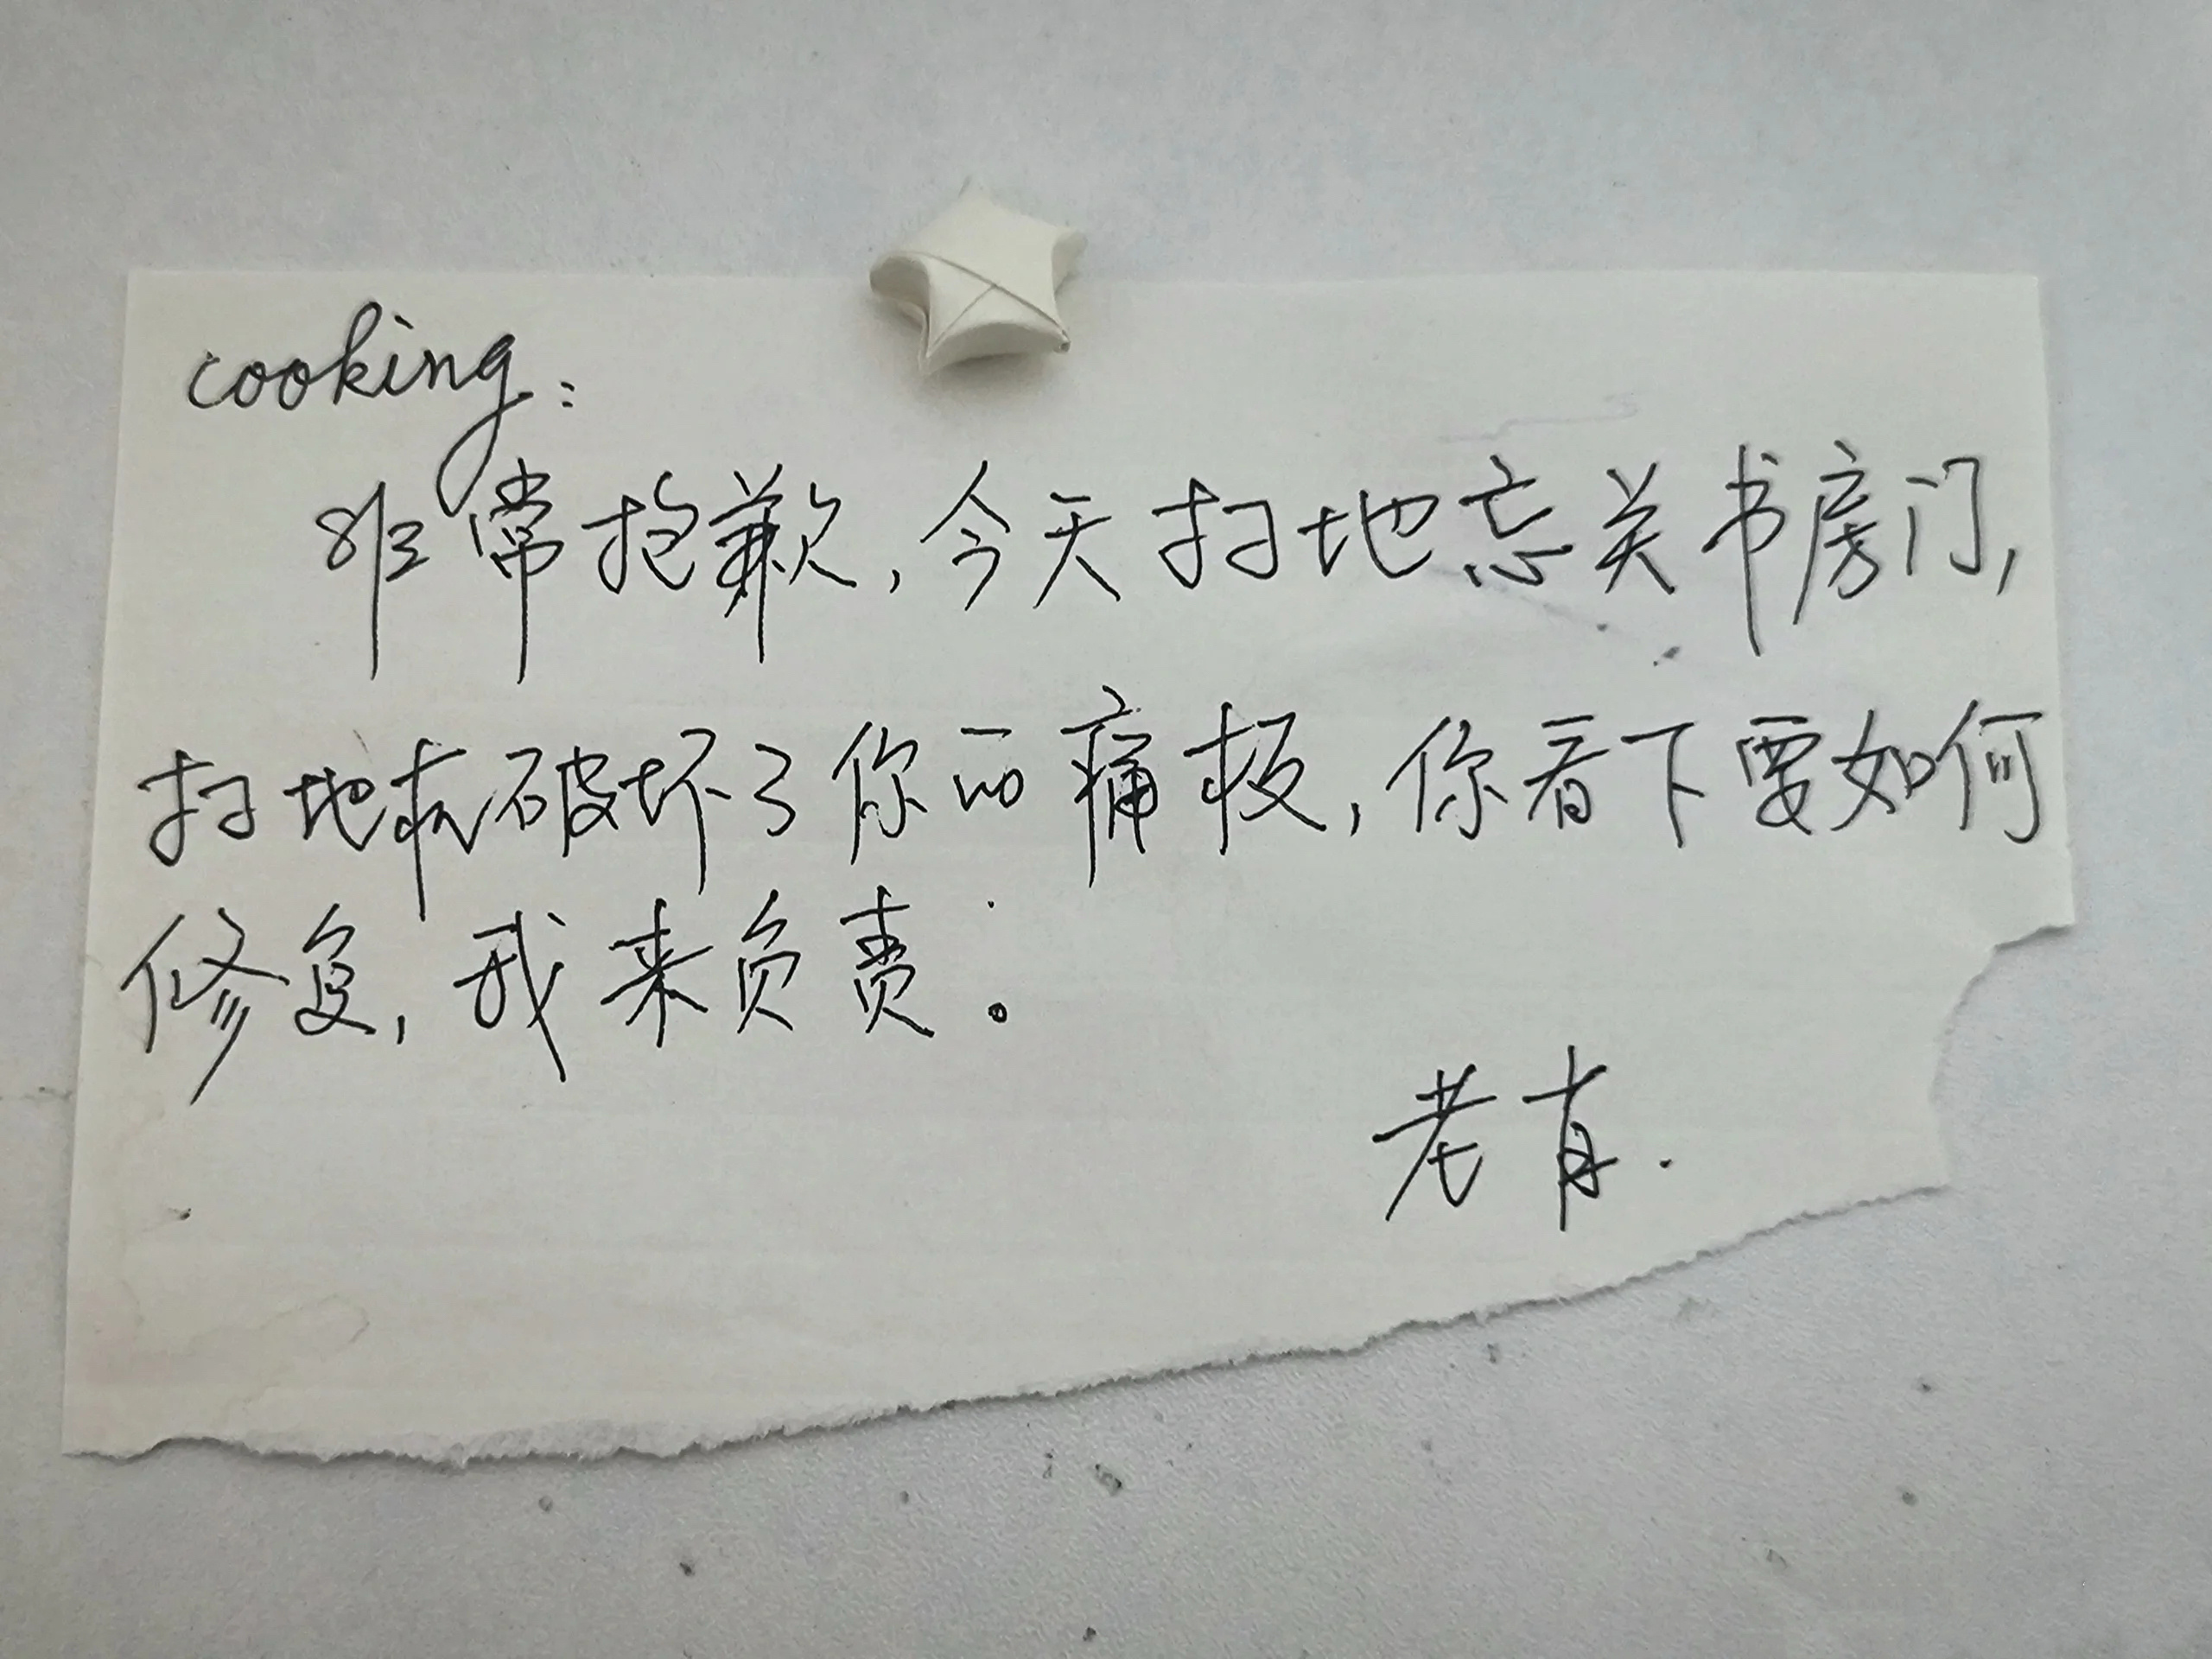 cooking:
非常抱歉,今天扫地忘关书房门,
扫地机破坏了你的痛板,你看下要如何
修复,我来负责。
老肯.